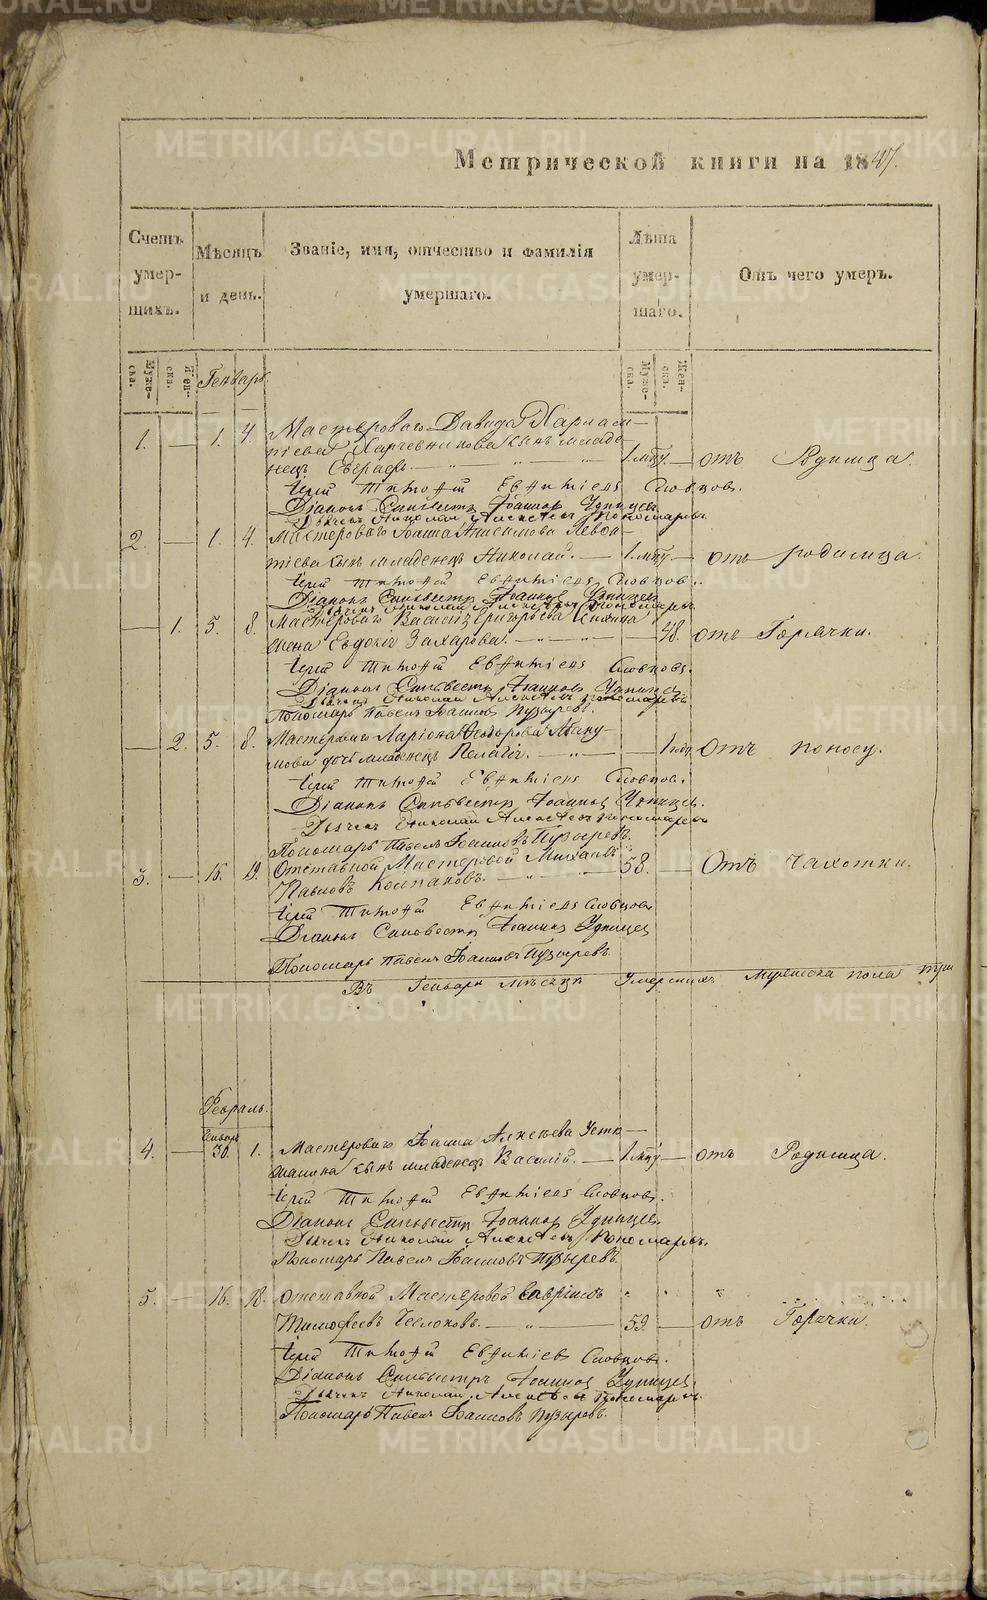 Метрической книги на 1847.
Счетъ умер-шихъ.
Мѣсяцъ и день.
Званіе, имя, отчество и фамилія умершаго.
Лѣта умер-шаго.
Отъ чего умеръ.
Муже-ска.
Жен-ска.
Генварь.
Муже-ска.
Жен-ска.
1. — 1. 4. Мастероваго Давида Харлам-
піева Харчевникова сынъ младе-
нецъ Евграфъ. — 1. — отъ Родимца.
Іерей Тимофей Евфиміевъ Словцовъ.
Діаконъ Сильвестръ Іоанновъ Удинцевъ
Дьячекъ Николай Алексѣевъ Пономаревъ
2. — 1. 4. Мастероваго Іоанна Анисимова
сынъ младенецъ Николай. — 1. — отъ родимца.
Іерей Тимофей Евфиміевъ Словцовъ.
Діаконъ Сильвестръ Іоанновъ Удинцевъ
Дьячекъ Николай Алексѣевъ Пономаревъ
— 1. 5. 8. Мастероваго Василія Григорьева
жена Евдокія Захарова. — 48. отъ Горячки.
Іерей Тимофей Евфиміевъ Словцовъ.
Діаконъ Сильвестръ Іоанновъ Удинцевъ
Дьячекъ Николай Алексѣевъ Пономаревъ
Пономарь Павелъ Іоанновъ Пузыревъ.
— 2. 5. 8. Мастероваго Ларіона Ѳеодорова Абаку-
мова дочь младенецъ Пелагія. — 1 отъ поносу.
Іерей Тимофей Евфиміевъ Словцовъ.
Діаконъ Сильвестръ Іоанновъ Удинцевъ.
Дьячекъ Николай Алексѣевъ Пономаревъ
Пономарь Павелъ Іоанновъ Пузыревъ.
3. — 16. 19. Отставной Мастеровой Михаилъ 58. — Отъ Чахотки.
Павловъ Колпаковъ.
Іерей Тимофей Евфиміевъ Словцовъ
Діаконъ Сильвестръ Іоанновъ Удинцевъ
Пономарь Павелъ Іоанновъ Пузыревъ.
Въ Генварѣ мѣсяцѣ Умершихъ Мужеска пола три
Февраль.
Генваря
4. — 30. 1. Мастероваго Іоанна Алексѣева Устю-
жанина сынъ младенецъ Василій. — 1. — отъ Родимца.
Іерей Тимофей Евфиміевъ Словцовъ.
Діаконъ Сильвестръ Іоанновъ Удинцевъ
Дьячекъ Николай Алексѣевъ Пономаревъ.
Пономарь Павелъ Іоанновъ Пузыревъ.
5. — 16. 18. Отставной Мастеровой Гавріилъ
Тимофеевъ — 59. — отъ Горячки.
Іерей Тимофей Евфиміевъ Словцовъ.
Діаконъ Сильвестръ Іоанновъ Удинцевъ
Дьячекъ Николай Алексѣевъ Пономаревъ.
Пономарь Павелъ Іоанновъ Пузыревъ.
METRIKI.GASO-URAL.RU